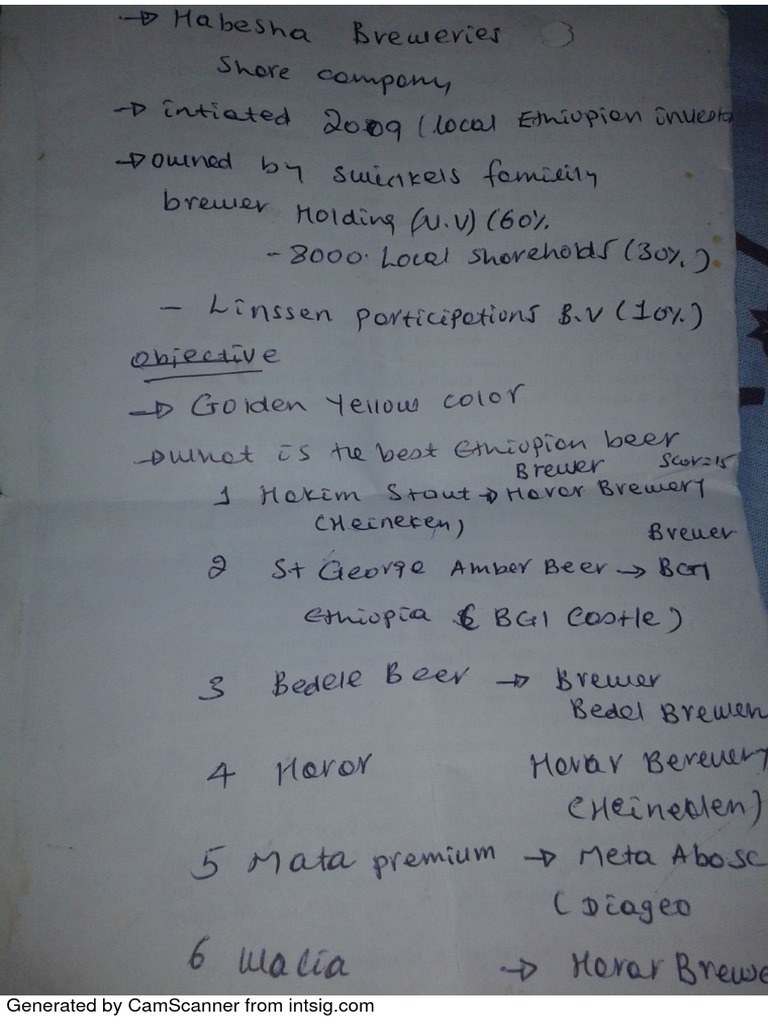 → Habesha Breweries
Shore company
→ intiated 2009 (local Ethiopian investo
→ owned by Swinkels famieily
brewer Holding (N.V) (60%.
- 8000. Local shoreholds (30%.)
- Linssen participations B.V (10%.)
objective
→ Golden Yellow color
→ what is the best Ethiopian beer
Brewer Scor=15
1 Hakim Stout → Harar Brewery
(Heineken)
Brewer
2 St George Amber Beer → BGI
Ethiopia ( BGI Castle )
3 Bedele Beer → Brewer
Bedel Brewen
4 Horor Harar Berewery
(Heineken)
5 Mata premium → Meta Abosc
( Diageo
6 Walia → Harar Brewe
Generated by CamScanner from intsig.com